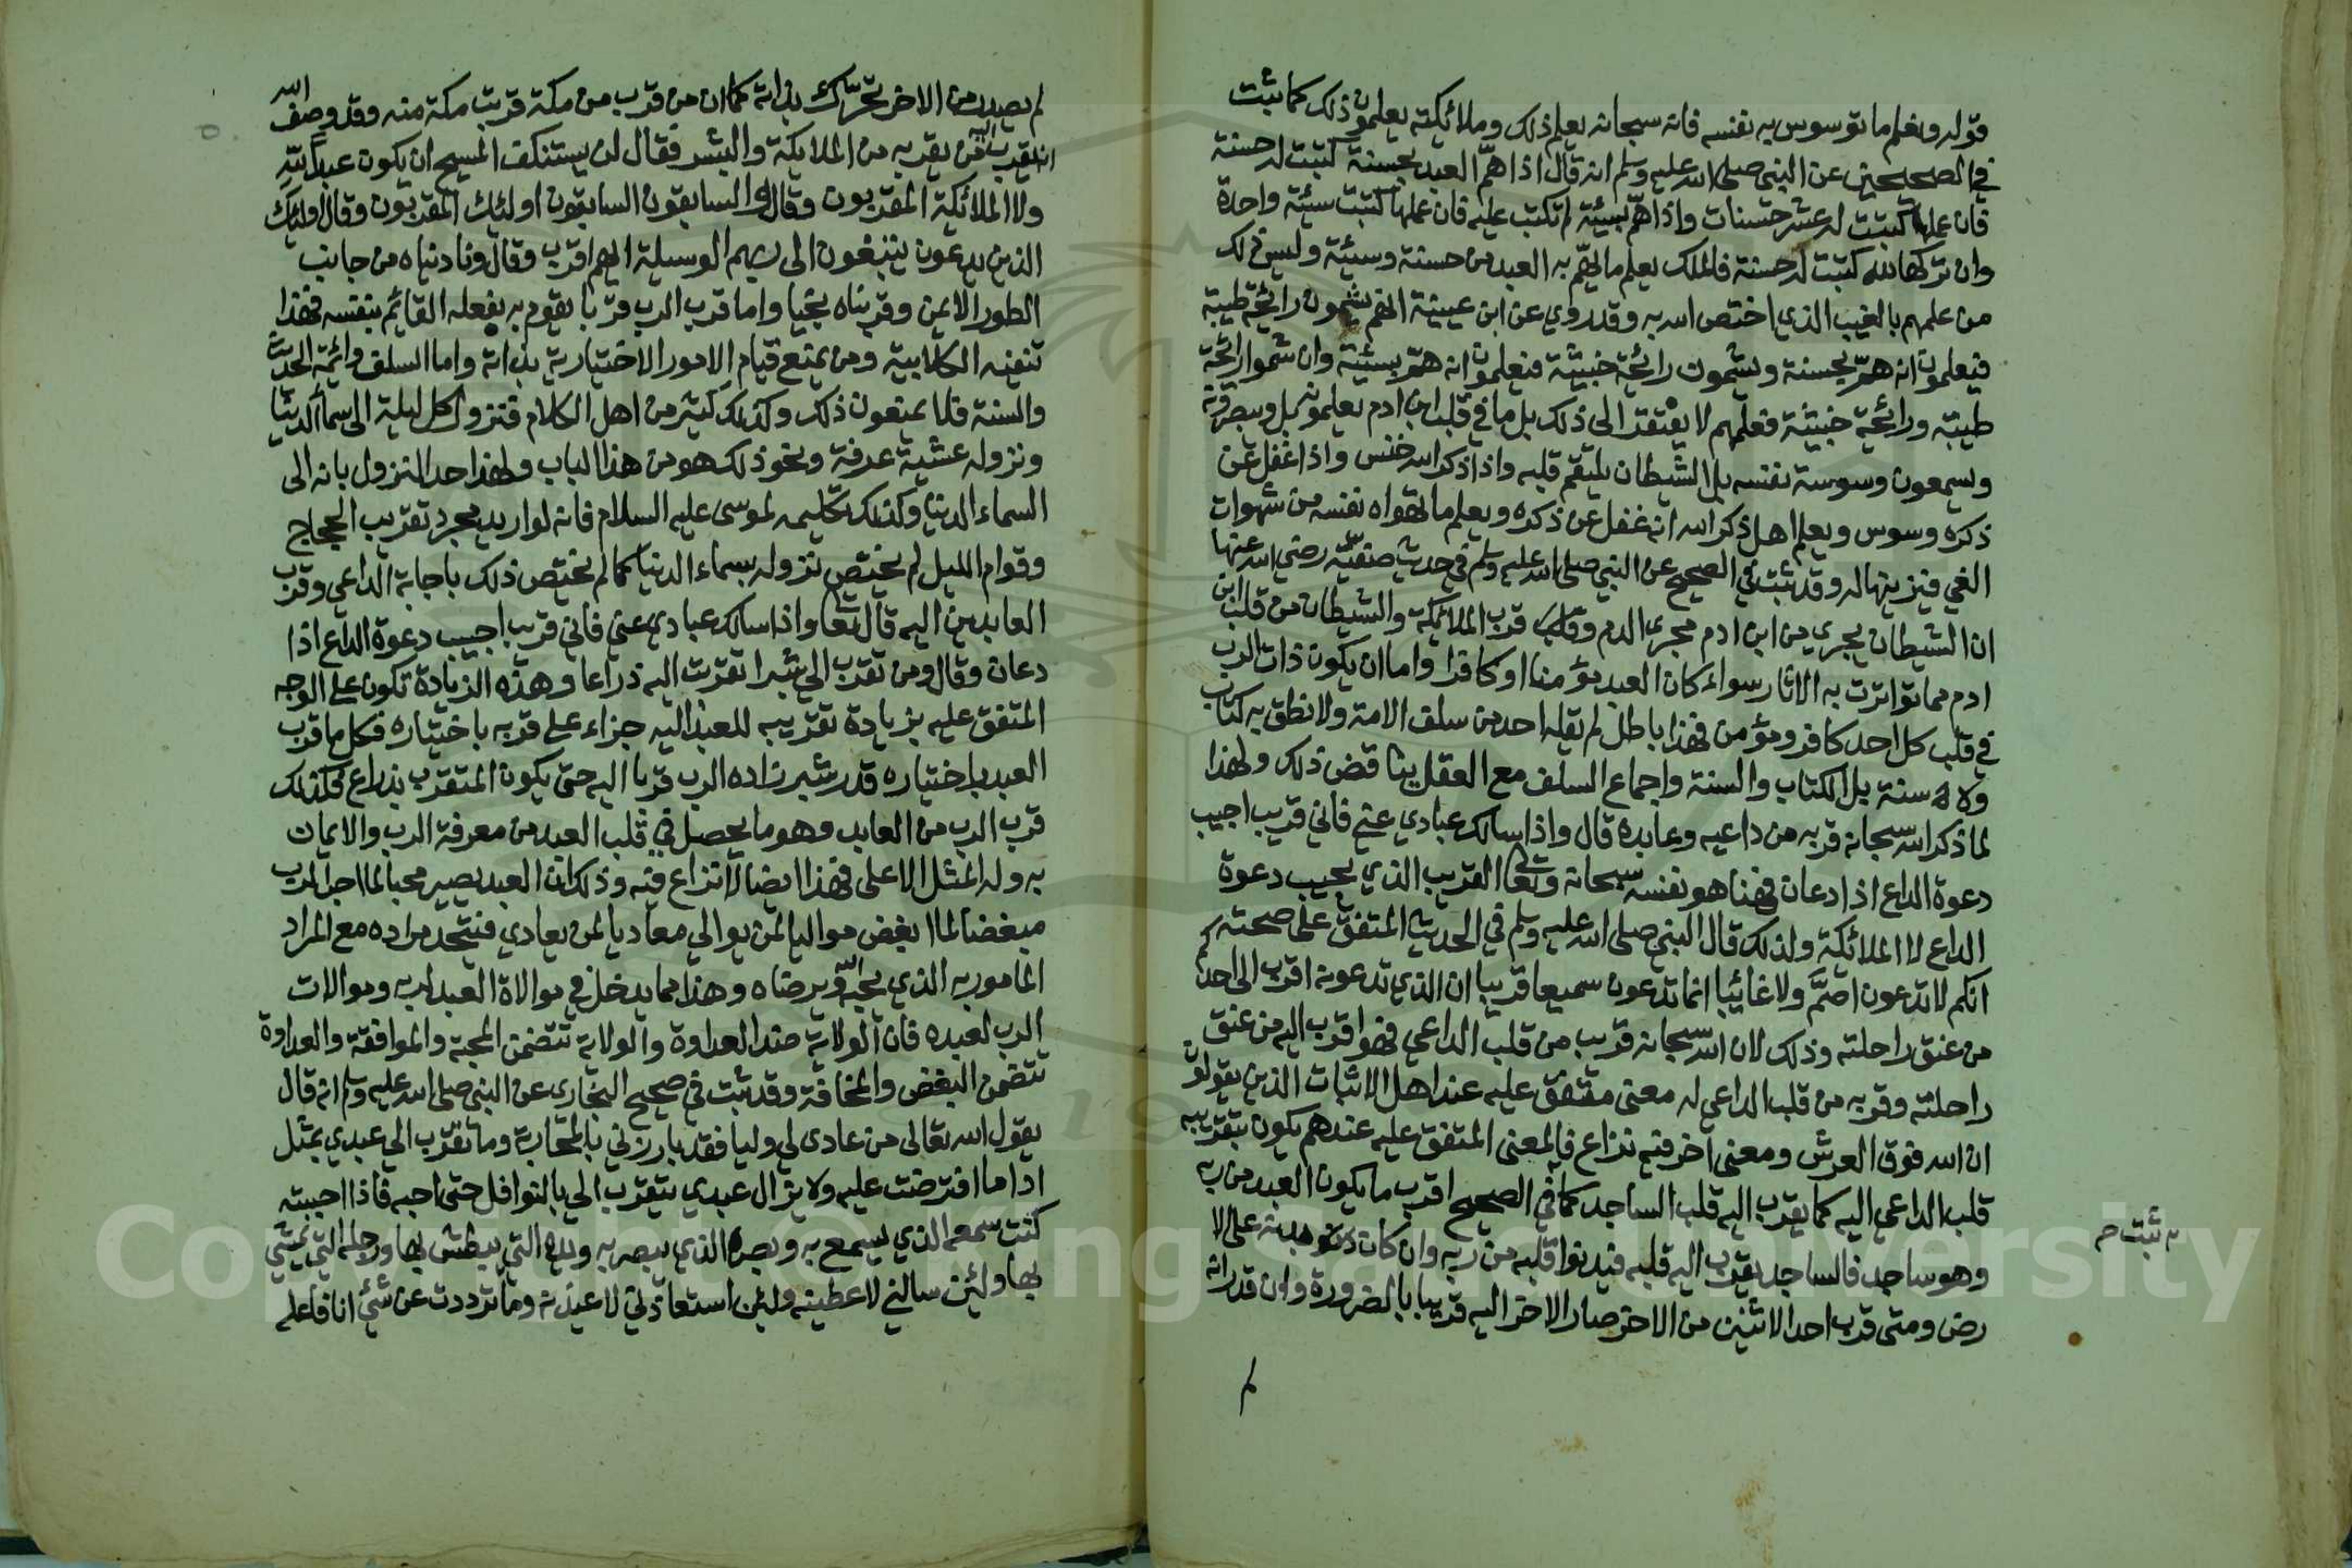 قوله ونعلم ما توسوس به نفسه فانه سبحانه يعلم ذلك وملائكته يعلمون ذلك كما ثبت
في الصحيحين عن النبي صلى الله عليه وسلم انه قال اذا هم العبد بحسنة كتبت له حسنة
فان عملها كتبت له عشر حسنات واذا هم بسيئة لم تكتب عليه فان عملها كتبت سيئة واحدة
وان تركها لله كتبت له حسنة فالملك يعلم ما يهم به العبد من حسنة وسيئة وليس ذلك
من علمهم بالغيب الذي اختص الله به وقد روي عن ابن عيينة انهم يشمون رائحة طيبة
فيعلمون انه هم بحسنة ويشمون رائحة خبيثة فيعلمون انه هم بسيئة وان شموا رائحة
طيبة ورائحة خبيثة فعلمهم لا يفتقر الى ذلك بل ما في قلب ابن ادم يعلمونه بل ويبصرونه
ويسمعون وسوسة نفسه بل الشيطان يلتقم قلبه واذا ذكر الله خنس واذا غفل عن
ذكره وسوس ويعلم اهل ذكر الله انه غفل عن ذكره ويعلم ما تهواه نفسه من شهوات
الغي فيزينها له وقد ثبت في الصحيح عن النبي صلى الله عليه وسلم في حديث صفية رضي الله عنها
ان الشيطان يجري من ابن ادم مجرى الدم وقرب الملائكة والشيطان من قلب ابن
ادم مما تواترت به الاثار سواء كان العبد مؤمنا او كافرا واما ان يكون ذات الرب
في قلب كل احد كافر ومؤمن فهذا باطل لم يقله احد من سلف الامة ولا نطق به كتاب
ولا سنة بل الكتاب والسنة واجماع السلف مع العقل يناقض ذلك ولهذا
لما ذكر الله سبحانه قربه من داعيه وعابده قال واذا سالك عبادي عني فاني قريب اجيب
دعوة الداع اذا دعان فهنا هو نفسه سبحانه وتعالى القريب الذي يجيب دعوة
الداع لا الملائكة ولذلك قال النبي صلى الله عليه وسلم في الحديث المتفق على صحته
انكم لا تدعون اصم ولا غائبا انما تدعون سميعا قريبا ان الذي تدعونه اقرب الى احدكم
من عنق راحلته وذلك لان الله سبحانه قريب من قلب الداعي فهو اقرب اليه من عنق
راحلته وقربه من قلب الداعي له معنى متفق عليه عند اهل الاثبات الذين يقولون
ان الله فوق العرش ومعنى اخر فيه نزاع فالمعنى المتفق عليه عندهم يكون بتقريبه
قلب الداعي اليه كما يقرب اليه قلب الساجد كما في الصحيح اقرب ما يكون العبد من ربه
ثبت
وهو ساجد فالساجد يقرب اليه قلبه فيدنوا قلبه من ربه وان كان بدنه على الا
رض ومتى قرب احد الاثنين من الاخر صار الاخر اليه قريبا بالضرورة وان قدر انه
لم
لم يصدر من الاخر تحرك بذاته كما ان من قرب من مكة قربت مكة منه وقد وصف الله
انه يقرب من يقربه من الملايكة والبشر فقال لن يستنكف المسيح ان يكون عبدا لله
ولا الملائكة المقربون وقال والسابقون السابقون اولئك المقربون وقال اولئك
الذين يدعون يبتغون الى ربهم الوسيلة ايهم اقرب وقال وناديناه من جانب
الطور الايمن وقربناه نجيا واما قرب الرب قربا يقوم به بفعله القايم بنفسه فهذا
تنفيه الكلابية ومن يمنع قيام الامور الاختيارية بذاته واما السلف وائمة الحديث
والسنة فلا يمنعون ذلك وكذلك كثير من اهل الكلام فنزوله كل ليلة الى سماء الدنيا
ونزوله عشية عرفة ونحو ذلك هو من هذا الباب ولهذا حد النزول بانه الى
السماء الدنيا وكذلك تكليمه لموسى عليه السلام فانه لو اريد مجرد تقريب الحجاج
وقوام الليل لم يختص نزوله بسماء الدنيا كما لم يختص ذلك باجابة الداعي وقرب
العابدين اليه قال تعالى واذا سالك عبادي عني فاني قريب اجيب دعوة الداع اذا
دعان وقال ومن تقرب الي شبرا تقربت اليه ذراعا وهذه الزيادة تكون على الوجه
المتفق عليه بزيادة تقريبه للعبد اليه جزاء على قربه باختياره فكل ما قرب
العبد باختياره قدر شبر زاده الرب قربا اليه حتى يكون المتقرب بذراع فكذلك
قرب الرب من العابد وهو ما يحصل في قلب العبد من معرفة الرب والايمان
به وله المثل الاعلى فهذا ايضا لا نزاع فيه وذلك ان العبد يصير محبا لما احب الرب
مبغضا لما ابغض مواليا لمن يوالي معاديا لمن يعادي فيتحد مراده مع المراد
المامور به الذي يحبه ويرضاه وهذا مما يدخل في موالاة العبد لربه وموالات
الرب لعبده فان الولاية ضد العداوة والولاية تتضمن المحبة والموافقة والعداوة
تتضمن البغض والمخالفة وقد ثبت في صحيح البخاري عن النبي صلى الله عليه وسلم انه قال
يقول الله تعالى من عادى لي وليا فقد بارزني بالمحاربة وما تقرب الي عبدي بمثل
اداء ما افترضت عليه ولا يزال عبدي يتقرب الي بالنوافل حتى احبه فاذا احببته
كنت سمعه الذي يسمع به وبصره الذي يبصر به ويده التي يبطش بها ورجله التي يمشي
بها ولئن سالني لاعطينه ولئن استعاذني لاعيذنه وما ترددت عن شئ انا فاعله
Copyright © King Saud University